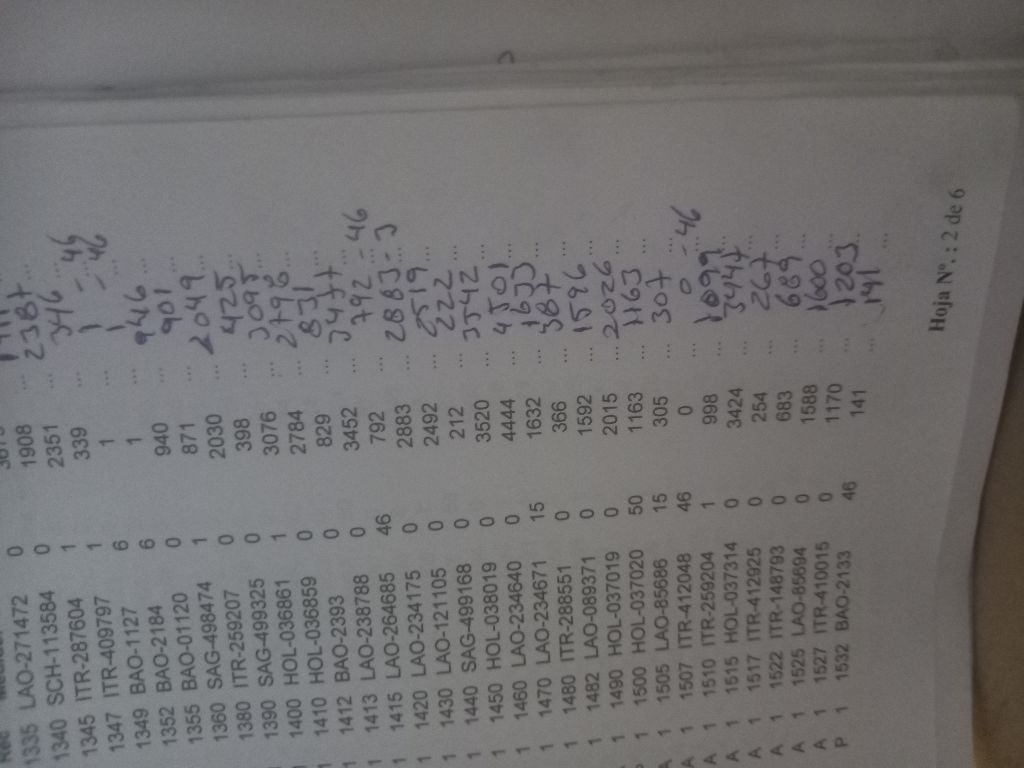 1335 LAO-271472 0
1340 SCH-113584 0 1908 ...
1345 ITR-287604 1 2351 ... 2387 ...
1347 ITR-409797 1 339 ... 346 ...
1349 BAO-1127 6 1 ... 1 ... -46
1352 BAO-2184 6 1 ... 1 ... -46
1355 BAO-01120 0 940 ... 946 ...
1360 SAG-498474 1 871 ... 901 ...
1380 ITR-259207 0 2030 ... 2049 ...
1390 SAG-499325 0 398 ... 425 ...
1 1400 HOL-036861 1 3076 ... 3095 ...
1 1410 HOL-036859 0 2784 ... 2798 ...
1 1412 BAO-2393 0 829 ... 831 ...
1 1413 LAO-238788 0 3452 ... 3477 ...
1 1415 LAO-264685 46 792 ... 792 - 46
1 1420 LAO-234175 0 2883 ... 2883 - 3
1 1430 LAO-121105 0 2492 ... 2519 ...
1 1440 SAG-499168 0 212 ... 222 ...
1 1450 HOL-038019 0 3520 ... 3542 ...
1 1460 LAO-234640 0 4444 ... 4501 ...
1 1470 LAO-234671 15 1632 ... 1633 ...
1 1480 ITR-288551 0 366 ... 387 ...
1 1482 LAO-089371 0 1592 ... 1596 ...
1 1490 HOL-037019 0 2015 ... 2026 ...
1 1500 HOL-037020 50 1163 ... 1163 ...
A 1 1505 LAO-85686 15 305 ... 307 ...
A 1 1507 ITR-412048 46 0 ... 0 - 46
A 1 1510 ITR-259204 1 998 ... 1099 ...
A 1 1515 HOL-037314 0 3424 ... 3447 ...
A 1 1517 ITR-412925 0 254 ... 267 ...
A 1 1522 ITR-148793 0 683 ... 689 ...
A 1 1525 LAO-85694 0 1588 ... 1600 ...
A 1 1527 ITR-410015 0 1170 ... 1203 ...
P 1 1532 BAO-2133 46 141 ... 141 ...
Hoja Nº : 2 de 6